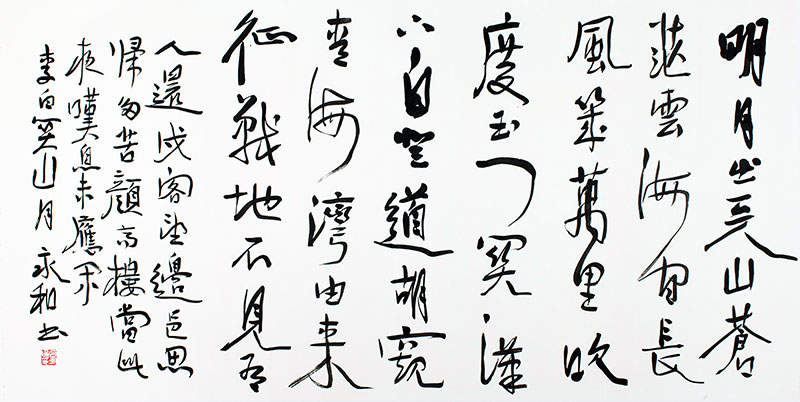 明月出天山蒼
茫雲海間長
風幾萬里吹
度玉門關漢
下白登道胡窺
青海灣由來
征戰地不見有
人還戍客望邊邑思
歸多苦顏高樓當此
夜嘆息未應閑
李白關山月 永和書